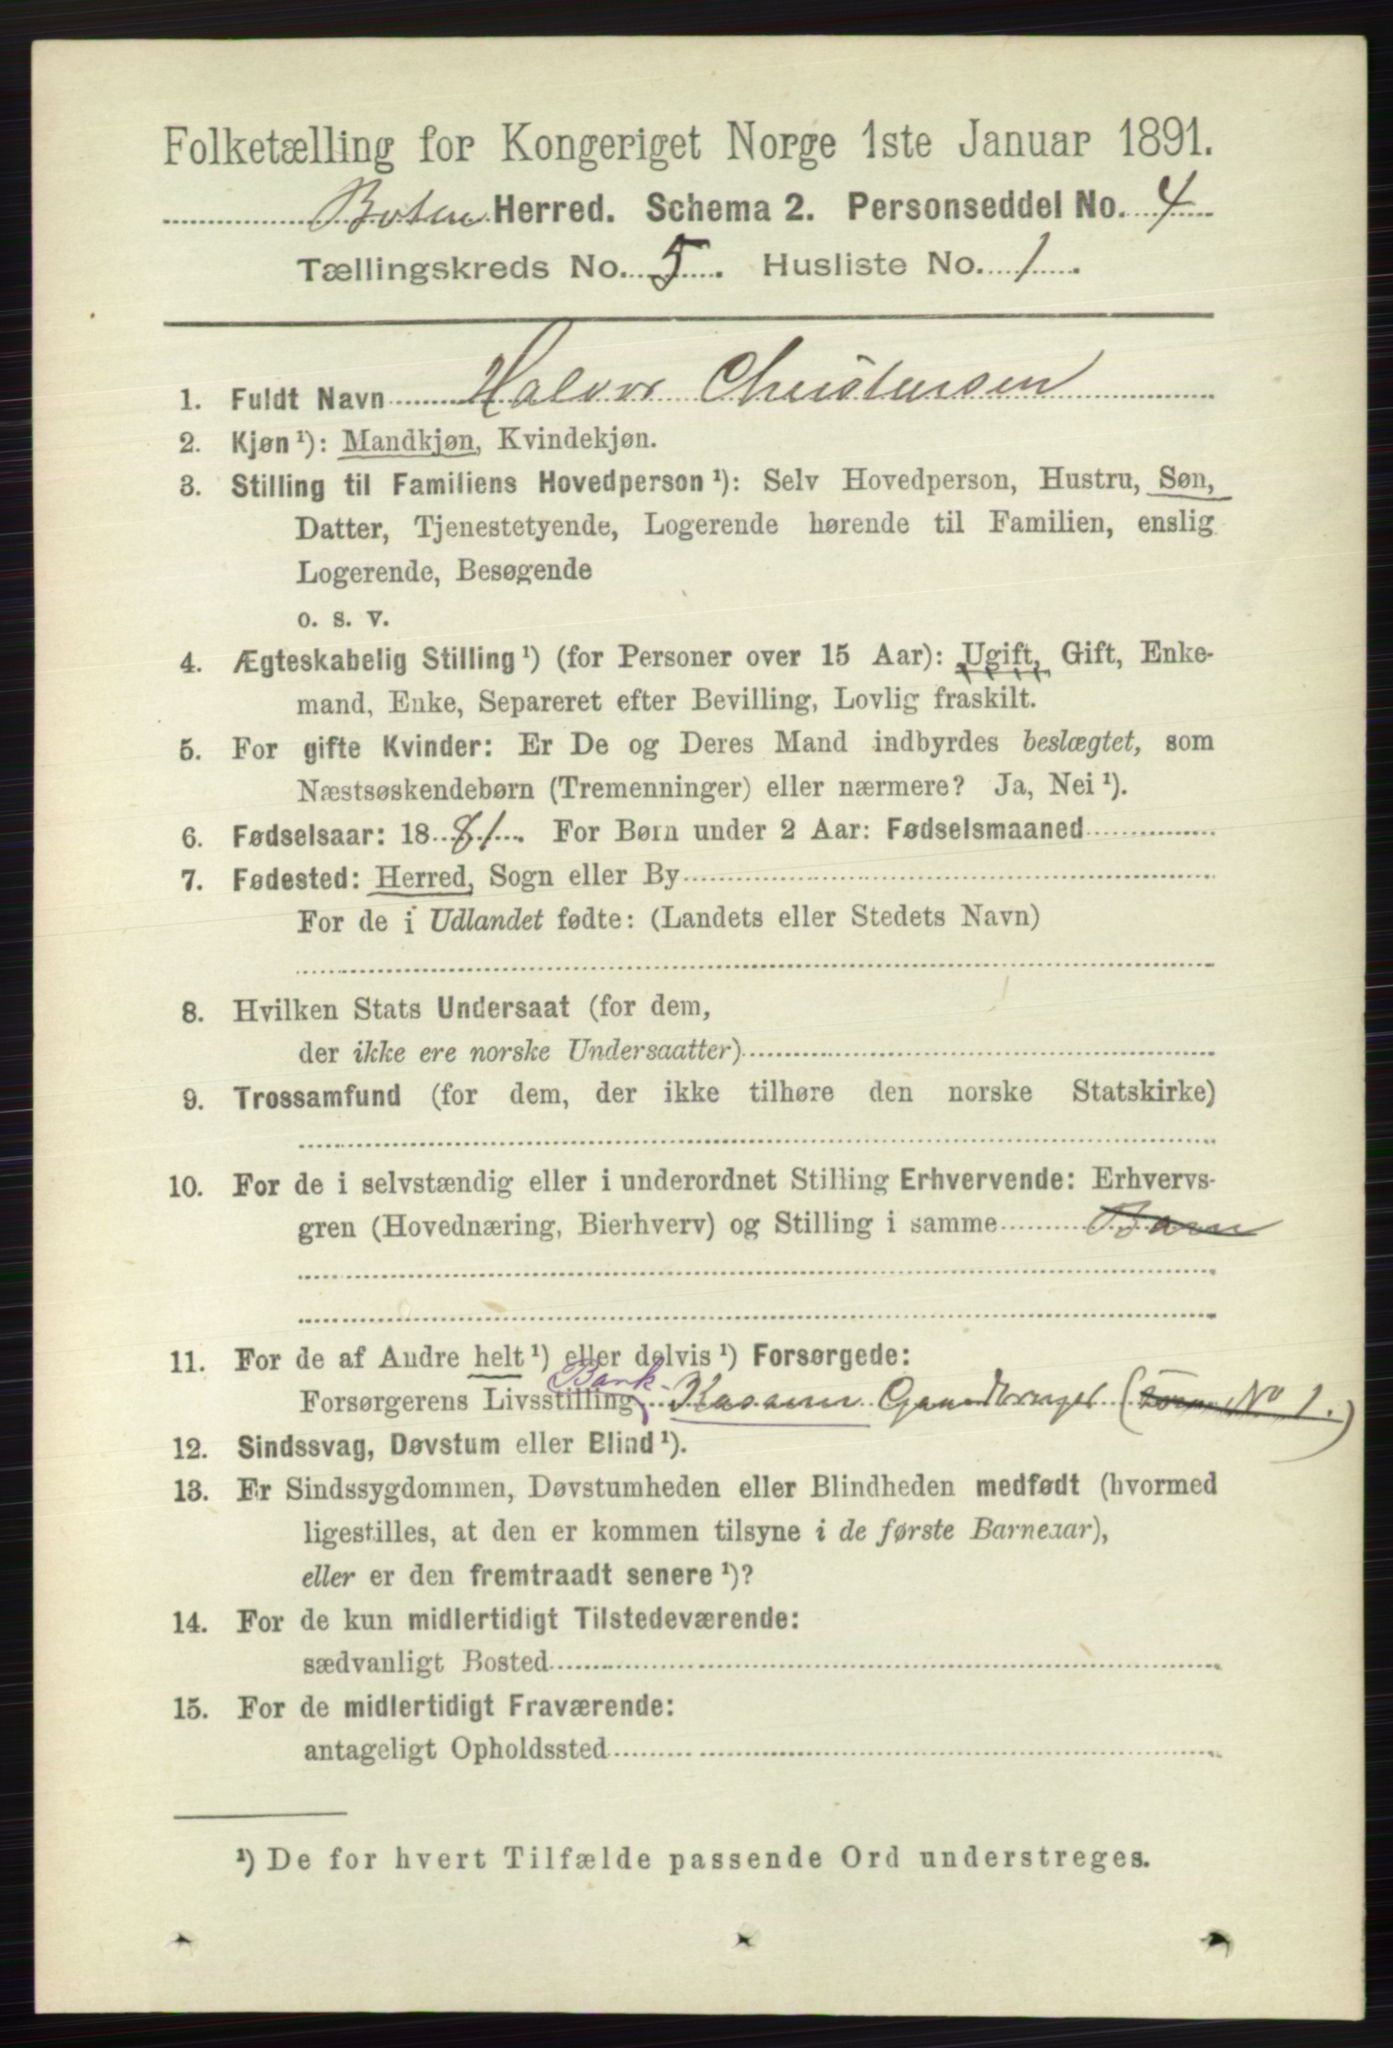 Folketælling for Kongeriget Norge 1ste Januar 1891.
Botne Herred. Schema 2. Personseddel No. 4
Tællingskreds No. 5. Husliste No. 1
1. Fuldt Navn Halvor Christensen
2. Kjøn¹): Mandkjøn, Kvindekjøn.
3. Stilling til Familiens Hovedperson¹): Selv Hovedperson, Hustru, Søn,
Datter, Tjenestetyende, Logerende hørende til Familien, enslig
Logerende, Besøgende
o. s. v.
4. Ægteskabelig Stilling¹) (for Personer over 15 Aar): Ugift, Gift, Enke-
mand, Enke, Separeret efter Bevilling, Lovlig fraskilt.
5. For gifte Kvinder: Er De og Deres Mand indbyrdes beslægtet, som
Næstsøskendebørn (Tremenninger) eller nærmere? Ja, Nei¹).
6. Fødselsaar: 1881. For Børn under 2 Aar: Fødselsmaaned
7. Fødested: Herred, Sogn eller By
For de i Udlandet fødte: (Landets eller Stedets Navn)
8. Hvilken Stats Undersaat (for dem,
der ikke ere norske Undersaatter)
9. Trossamfund (for dem, der ikke tilhøre den norske Statskirke)
10. For de i selvstændig eller i underordnet Stilling Erhvervende: Erhvervs-
gren (Hovednæring, Bierhverv) og Stilling i samme Barn
11. For de af Andre helt¹) eller delvis¹) Forsørgede:
Bank-
Forsørgerens Livsstilling Kaserer Gaardbruger ( No 1.)
12. Sindssvag, Døvstum eller Blind¹).
13. Er Sindssygdommen, Døvstumheden eller Blindheden medfødt (hvormed
ligestilles, at den er kommen tilsyne i de første Barneaar),
eller er den fremtraadt senere¹)?
14. For de kun midlertidigt Tilstedeværende:
sædvanligt Bosted
15. For de midlertidigt Fraværende:
antageligt Opholdssted
¹) De for hvert Tilfælde passende Ord understreges.